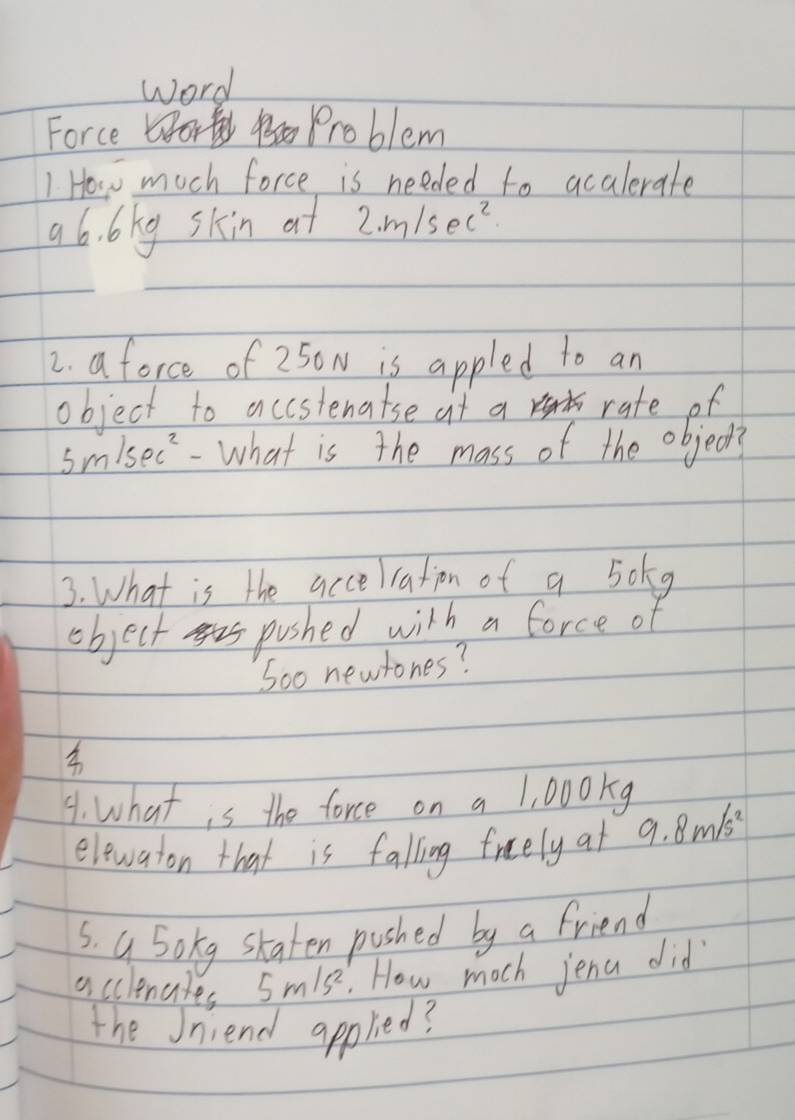 Word
Force Problem
1. How much force is needed to acalerate
a 6.6kg skin at 2.m/sec².
2. a force of 250N is appled to an
object to accstenatse at a rate of
5m/sec² - What is the mass of the object?
3. What is the accelration of a 50kg
object pushed with a force of
500 newtones?
4. What is the force on a 1,000kg
elewaton that is falling freely at 9.8m/s²
5. a 50kg skaten pushed by a friend
acclenates 5m/s². How moch jena did
the Jniend applied?